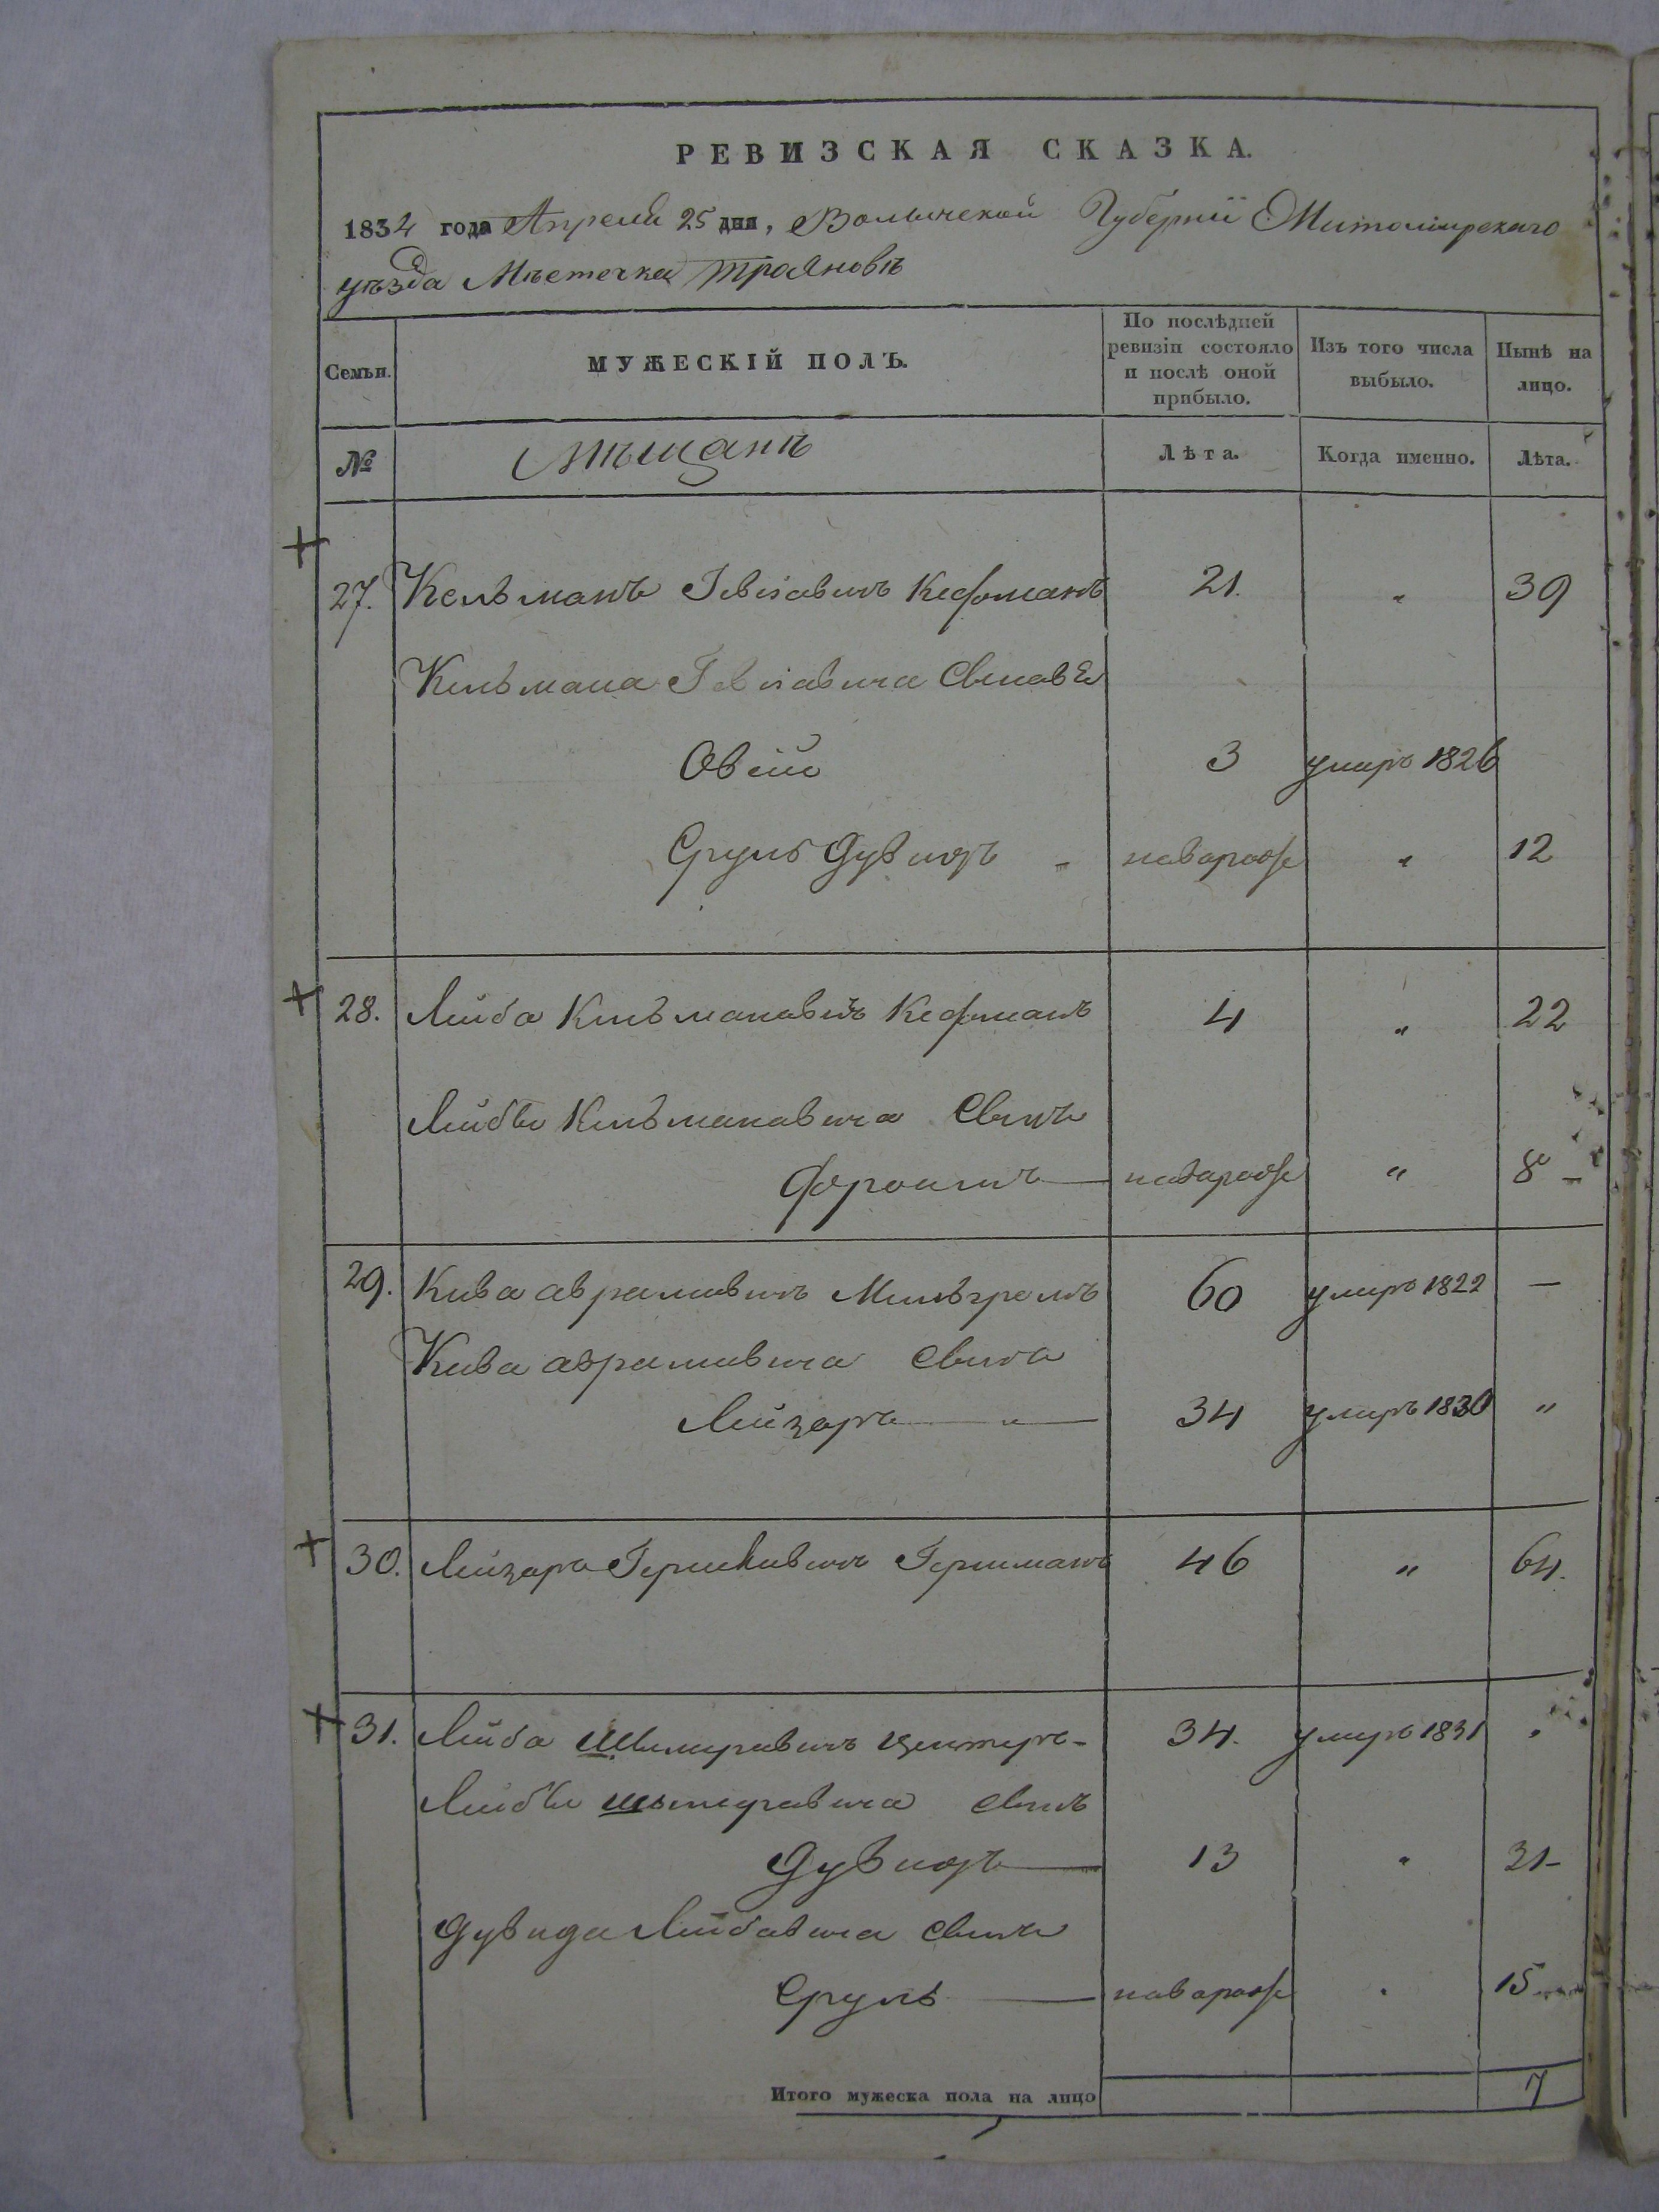 РЕВИЗСКАЯ СКАЗКА.
1834 года Апреля 25 дня, Волынской Губернїи Житомирскаго
уѣзда Мѣстечка Трояновѣ
Семьи.
МУЖЕСКІЙ ПОЛЪ.
По послѣдней ревизіи состояло и послѣ оной прибыло.
Изъ того числа выбыло.
Нынѣ на лицо.
№
Мѣщанъ
Лѣта.
Когда именно.
Лѣта.
27. Кельманъ Кефманъ 21. " 39
Кельмана
Овсій 3 умеръ 1826
Сруль Дувидъ " новорож " 12
28. Лейба Кельмановичъ Кефманъ 4 " 22
Лейбы Кельмановича сынъ
Фроимъ новорож " 8
29. Кива Аврамовичъ Мильгромъ 60 умеръ 1822 —
Кива Аврамовича сынъ
Лейзоръ " 34 умеръ 1830 "
30. Лейзоръ Гершковичъ Гершманъ 46 " 64.
31. Лейба Шмеровичъ Центеръ 34. умеръ 1831 "
Лейбы Шмеровича сынъ
Дувидъ 13 " 31
Дувида Лейбовича сынъ
Сруль новорож " 15
Итого мужеска пола на лицо 7